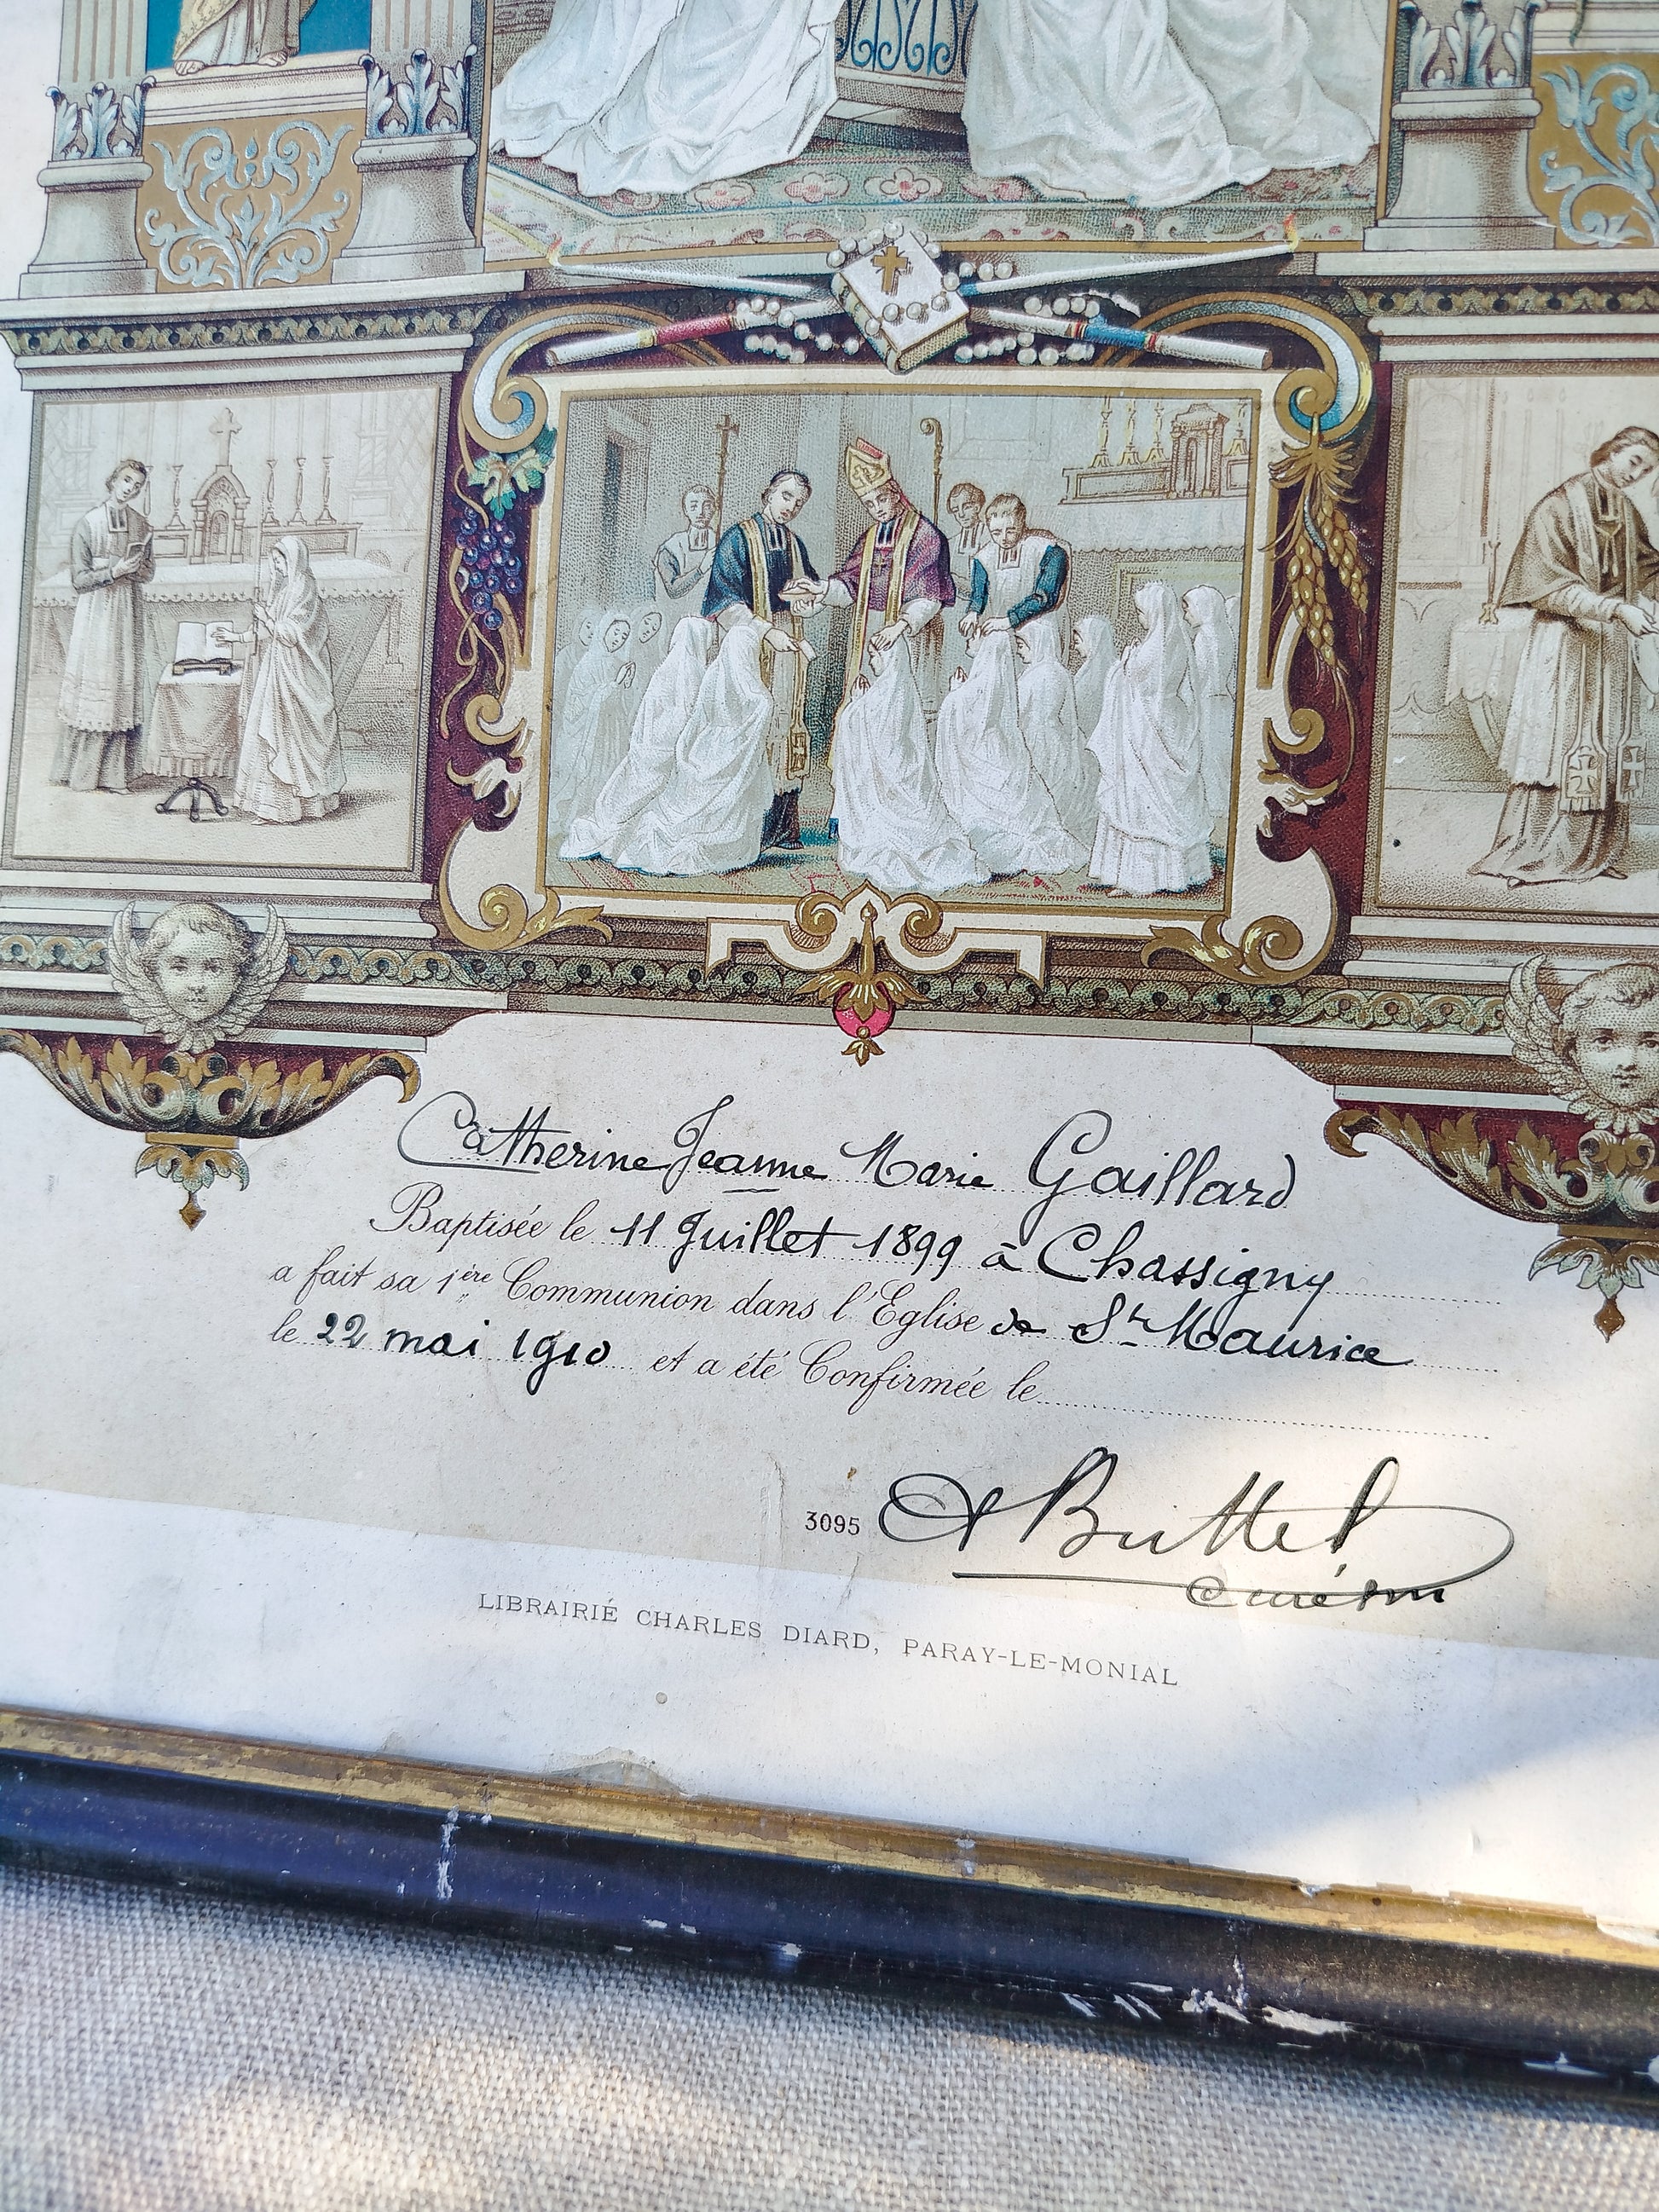 Catherine Jeanne Marie Gaillard
Baptisée le 11 Juillet 1899 à Chassigny
a fait sa 1ère Communion dans l'Eglise de St Maurice
le 22 mai 1910 et a été Confirmée le
3095 Buttel
curé
LIBRAIRIÉ CHARLES DIARD, PARAY-LE-MONIAL